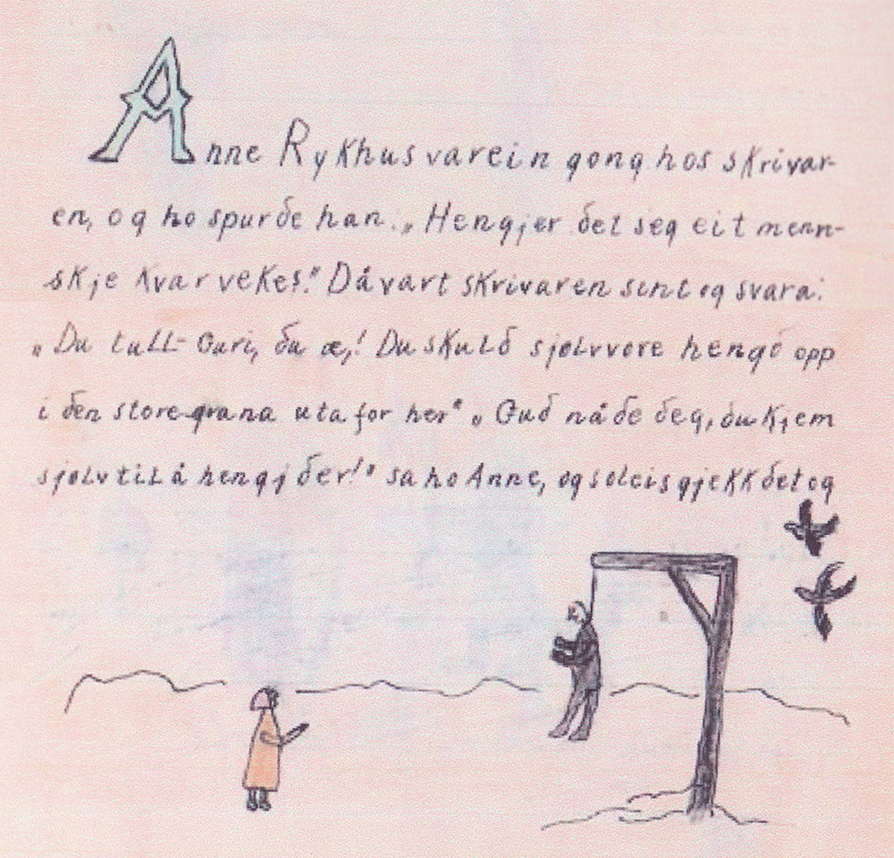 Anne Rykhus var ein gong hos skrivar-
en, og ho spurde han: „Hengjer det seg eit menn-
skje kvar veke?." Då vart skrivaren sint og svara:
„Du tull-Guri, du æ,! Du skuld sjølv vore hengd opp
i den store grana uta for her" „Gud nåde deg, du kjem
sjølv til å hengj der!" sa ho Anne, og soleis gjekk det og